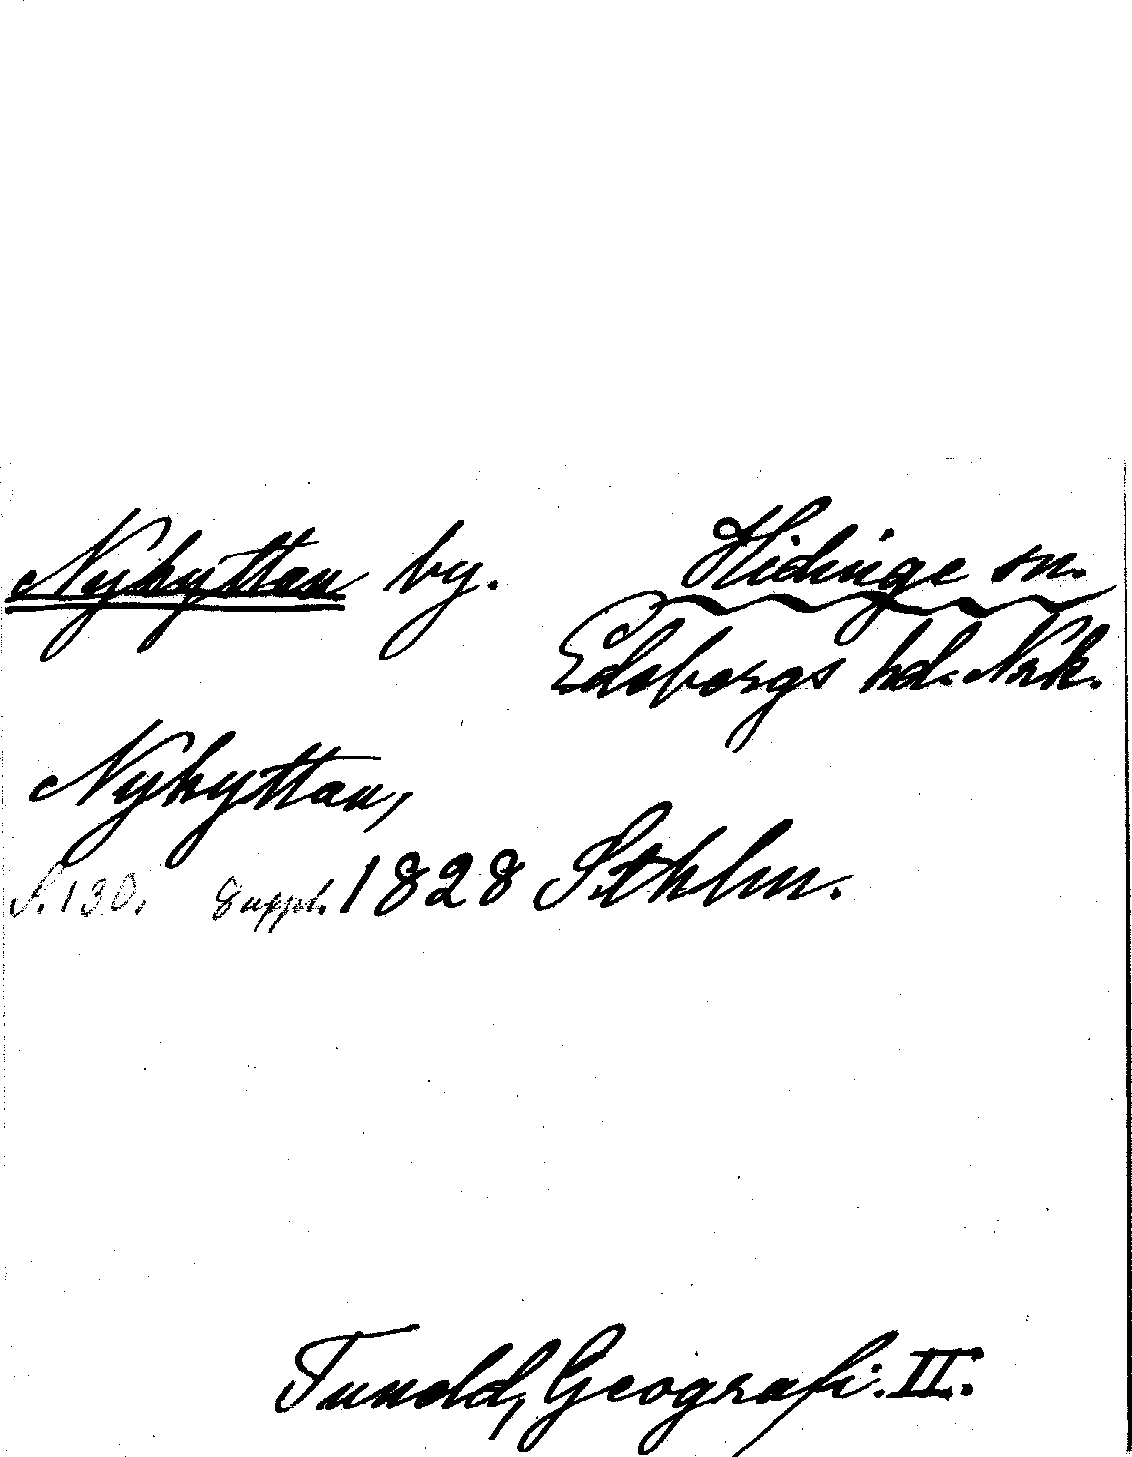 Nyhyttan by.
Hidinge sn.
Edsbergs hd. Nrk.
Nyhyttan,
S. 130. Suppl. 1828 Sthlm.
Tunold, Geografi. II.